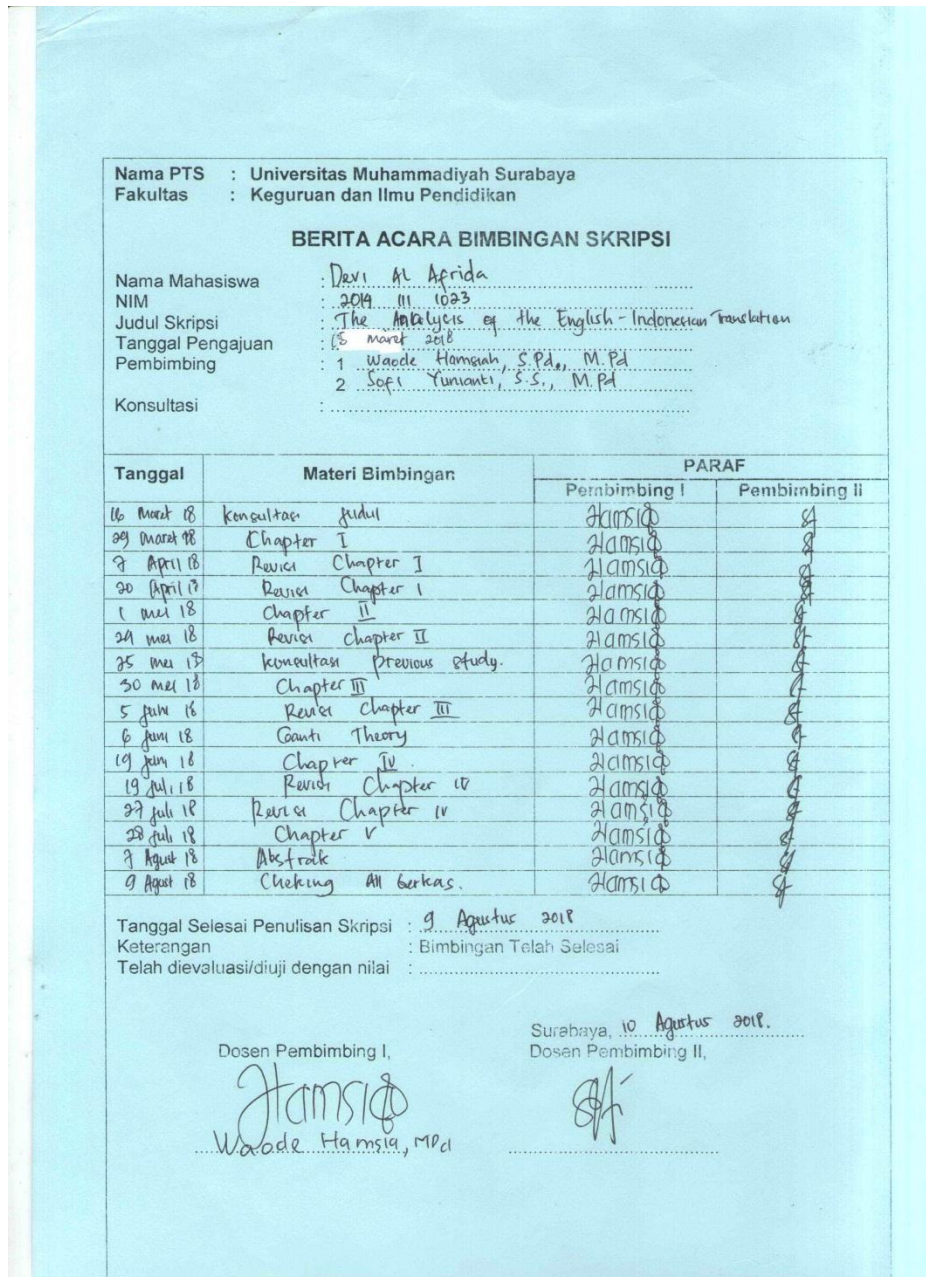 Nama PTS : Universitas Muhammadiyah Surabaya
Fakultas : Keguruan dan Ilmu Pendidikan
BERITA ACARA BIMBINGAN SKRIPSI
Nama Mahasiswa : Devi Al Afrida
NIM : 2014 111 1023
Judul Skripsi : The Analysis of the English-Indonesian Translation
Tanggal Pengajuan : 15 Maret 2018
Pembimbing : 1 Waode Hamsiah, S.Pd., M.Pd
2 Sofi Yunianti, S.S., M.Pd
Konsultasi :
Tanggal Materi Bimbingan PARAF
Pembimbing I Pembimbing II
16 Maret 18 Konsultasi Judul Hamsia
29 Maret 18 Chapter I Hamsia
7 April 18 Revisi Chapter I Hamsia
20 April 18 Revisi Chapter I Hamsia
1 Mei 18 Chapter II Hamsia
24 Mei 18 Revisi Chapter II Hamsia
25 Mei 18 Konsultasi previous study. Hamsia
30 Mei 18 Chapter III Hamsia
5 Juni 18 Revisi Chapter III Hamsia
6 Juni 18 Ganti Theory Hamsia
19 Juni 18 Chapter IV. Hamsia
19 Juli 18 Revisi Chapter IV Hamsia
27 Juli 18 Revisi Chapter IV Hamsia
28 Juli 18 Chapter V Hamsia
7 Agust 18 Abstrak Hamsia
9 Agust 18 Cheking All berkas. Hamsia
Tanggal Selesai Penulisan Skripsi : 9 Agustus 2018
Keterangan : Bimbingan Telah Selesai
Telah dievaluasi/diuji dengan nilai :
Surabaya, 10 Agustus 2018.
Dosen Pembimbing I, Dosen Pembimbing II,
Hamsia
Waode Hamsia, MPd